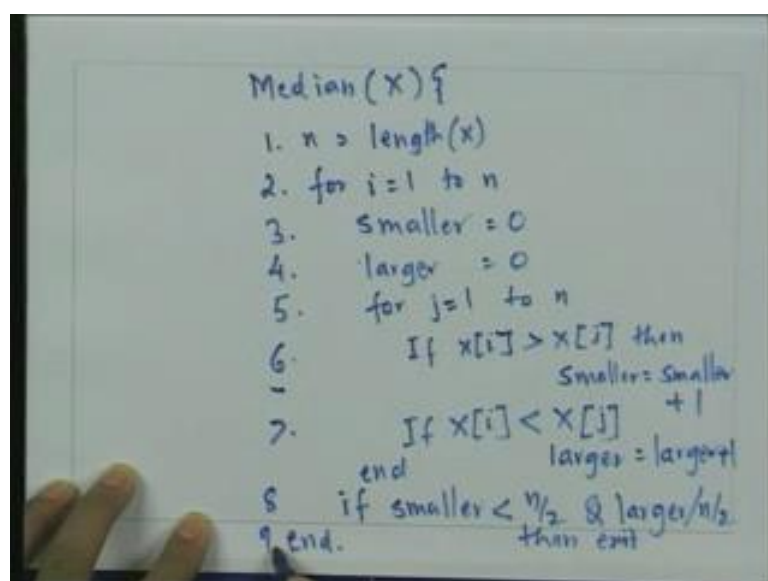 Median (X) {
1. n = length(x)
2. for i=1 to n
3. smaller = 0
4. larger = 0
5. for j=1 to n
6. If X[i] > X[j] then
smaller = smaller
+ 1
7. If X[i] < X[j]
larger = larger+1
end
8 if smaller < n/2 & larger/n/2
then exit
9. end.